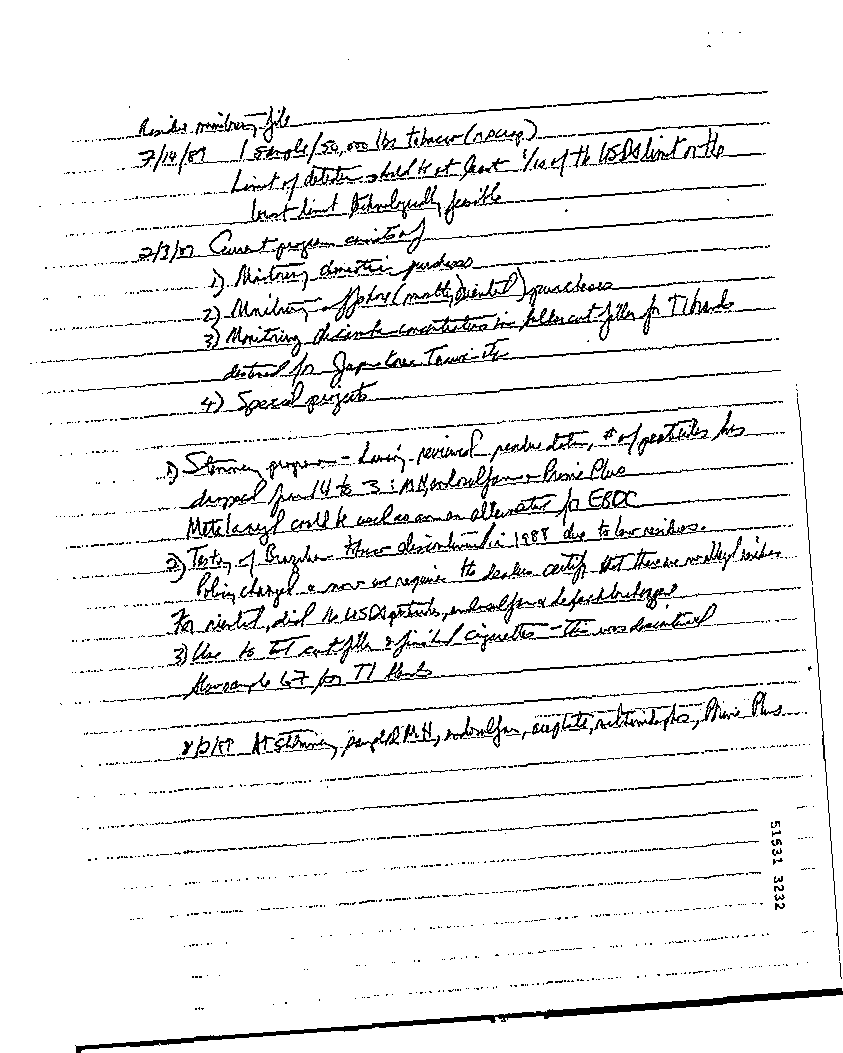 Residue monitoring file
7/14/87 1 sample/50,000 lbs tobacco
Limit of detection should be at least 1/10 of the USDA limit or the
lowest limit technologically feasible
2/3/87 Current program consists of
1) Monitoring domestic purchases
2) Monitoring offshore (mostly oriental) purchases
3) Monitoring concentration in cut filler for TI brands
destined for Japan Korea Taiwan
4) Special projects
1) Stemmery program - having reviewed residue data, # of pesticides has
dropped from 14 to 3: MH, endosulfan & Prime Plus
Metalaxyl could be used as an alternative for EBDC
2) Testing of Brazilian discontinued in 1988 due to low residues.
Policy changed & now we require the dealers certify that there are no residues
For oriental, did the USDA pesticides, endosulfan &
3) Use to test cut filler & finished cigarettes - this was discontinued
for TI brands
At stemmery, sampled MH, endosulfan, acephate, methamidophos, Prime Plus
51531 3232